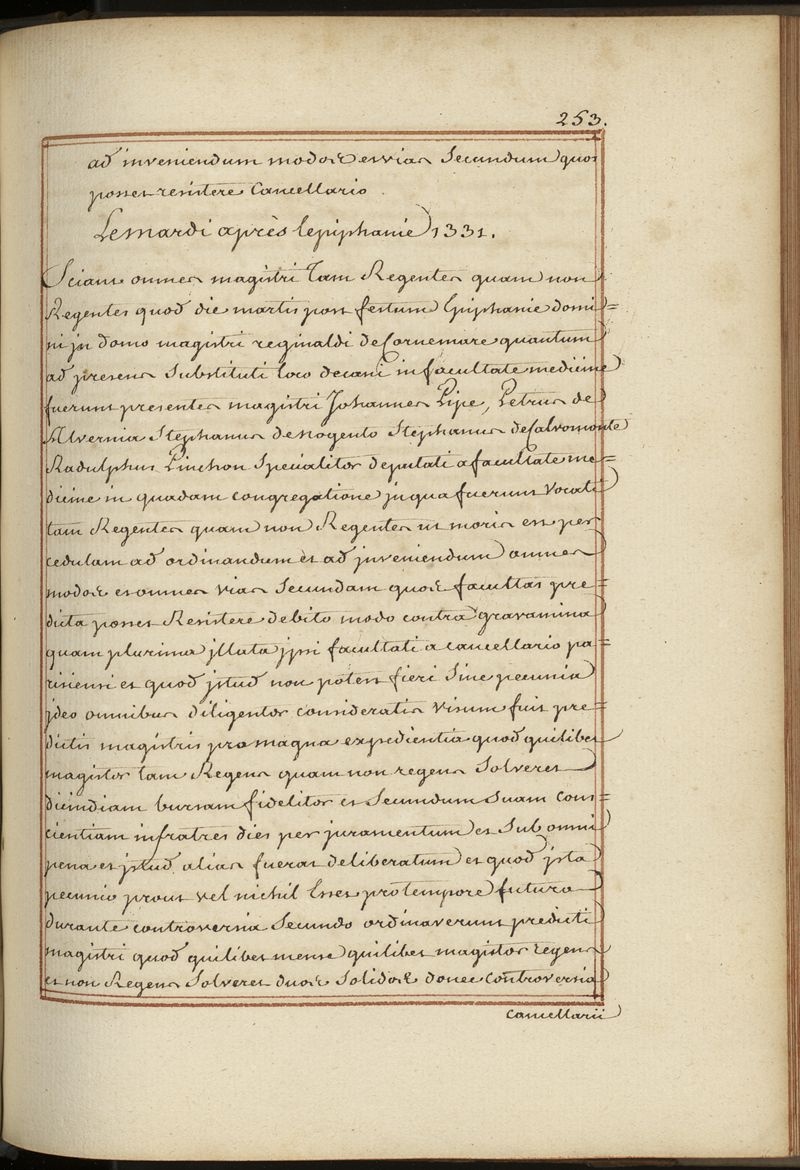 253.
ad inveniendum modos et vias Secundum quos
posset resistere Cancellario.
Le mardi après lepiphanie 1331.
Sciant omnes magistri Tam Regentes quam non
Regentes quod die martis post festum Epiphanie domi=
ni jn domo magistri reginaldi de Cornemare quantum
ad presens Substituti loco decani in facultate medicine
fuerunt presentes magistri Johannes Pipe, Petrus de
Alvernia Stephanus de Nogento Stephanus de Calvomonte
Radulphus Pinchon Specialiter deputati a facultate me=
dicine in quadam congregatione jn qua fuerunt vocati
tam Regentes quam non Regentes ut moris est per
cedulam ad ordinandum et ad jnveniendum omnes
modos et omnes vias Secundam quos facultas pre=
dicta posset Resistere debito modo contra gravamina
quam plurima jllata jpsi facultati a cancellario pa=
risiensi et quod jstud non potest fieri Sine pecunia
jdeo omnibus diligenter consideratis visum fuit pre=
dictis magistris pro magna expedientia quod quilibet
magister tam Regens quam non regens Solveret
dimidiam bursam fideliter et Secundum Suam cons=
cientiam infra tres dies per juramentum et Sub omni
pena et jstud alias fuerat deliberatum et quod jsta
pecunio prout vel nichil Esset pro tempore futuro
durante controversia Secundo ordinaverunt predicti
magistri quod quilibet mense quilibet magister regens
et non Regens Solveret duos Solidos donec Controversia
Cancellarii